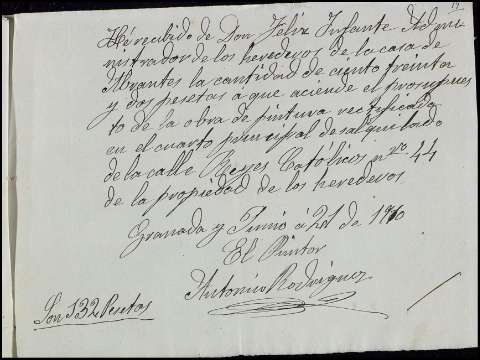 Hé recibido de Don Feliz Infante Admi-
nistrador de los herederos de la casa de
Abrantes la cantidad de ciento treinta
y dos pesetas a que aciende el prosupues
to de la obra de pintura rectificada
en el cuarto principal desalquilado
de la calle Reyes Católicos nro 44
de la propiedad de los herederos
Granada y Junio á 21 de 1910
El Pintor
Antonio Rodriguez
Son 132 Pesetas